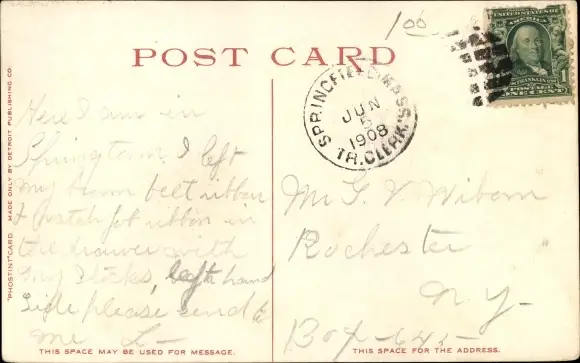 1 00
POST CARD
UNITED STATES OF AMERICA
FRANKLIN
1
POSTAGE
ONE CENT
SPRINGFIELD, MASS.
JUN
5
1908
TR. CLERK'S
"PHOSTINT" CARD MADE ONLY BY DETROIT PUBLISHING CO.
Here I am in
I left
my brown belt ribbon
& watch fob ribbon in
the drawer with
my stocks, left hand
side please send to
me L-
Mr G. V.
Rochester
N. Y-
Box-645-
THIS SPACE MAY BE USED FOR MESSAGE.
THIS SPACE FOR THE ADDRESS.